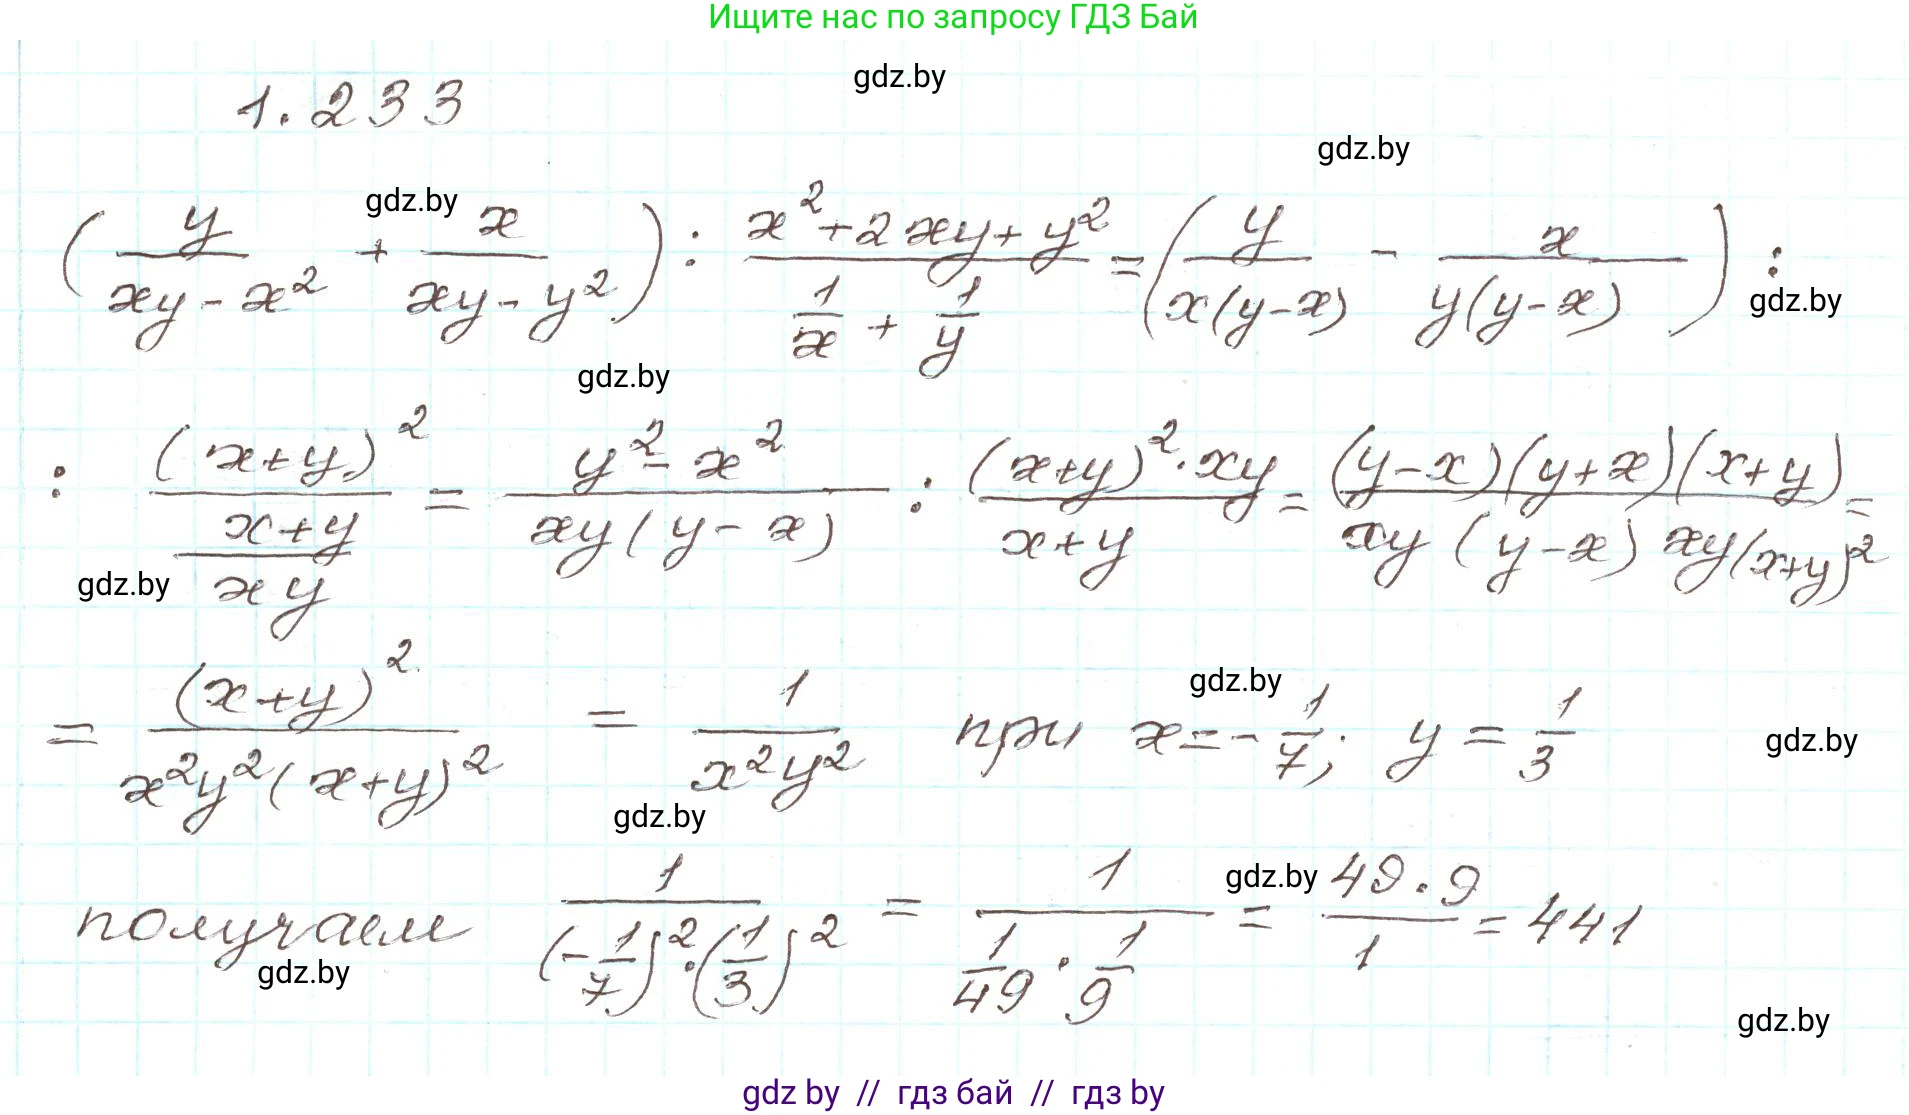 Ищите нас по запросу ГДЗ Бай
gdz.by
1.233
gdz.by
gdz.by
(y/(xy-x²) + x/(xy-y²)) : (x²+2xy+y²)/(1/x + 1/y) = (y/(x(y-x)) - x/(y(y-x))) :
gdz.by
gdz.by
: (x+y)²/((x+y)/(xy)) = (y²-x²)/(xy(y-x)) : ((x+y)²·xy)/(x+y) = ((y-x)(y+x)(x+y))/(xy(y-x)xy(x+y)²) =
gdz.by
= (x+y)²/(x²y²(x+y)²) = 1/(x²y²) при x=-1/7; y=1/3
gdz.by
gdz.by
gdz.by
получаем 1/((-1/7)²·(1/3)²) = 1/(1/49·1/9) = (49·9)/1 = 441
gdz.by
gdz.by
gdz.by
gdz by // гдз бай // гдз by